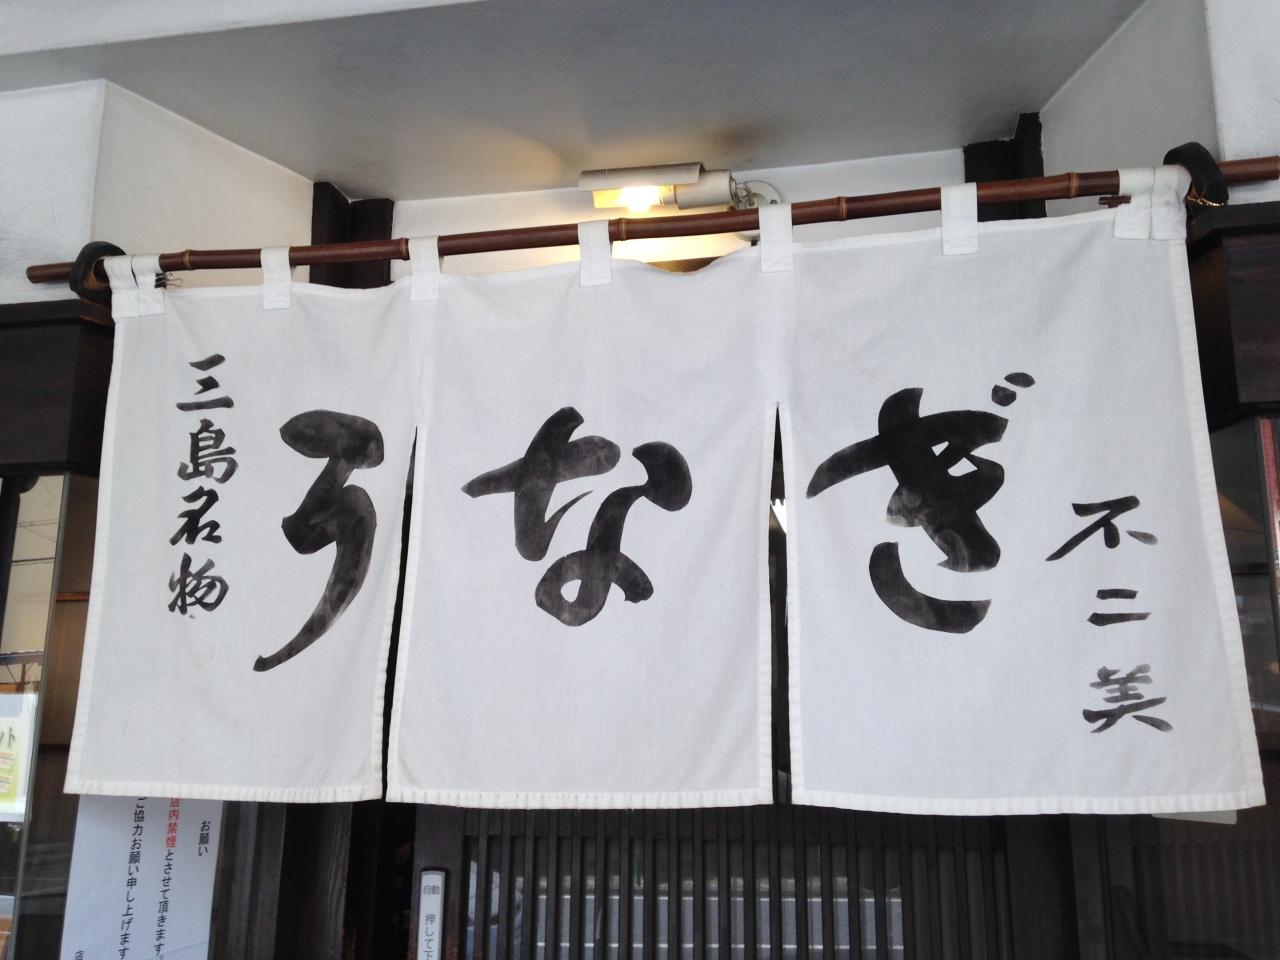 三島名物
うなぎ
不二美
お願い
店内禁煙とさせて頂きます。
ご協力お願い申し上げます
店
自動
押して下
ット